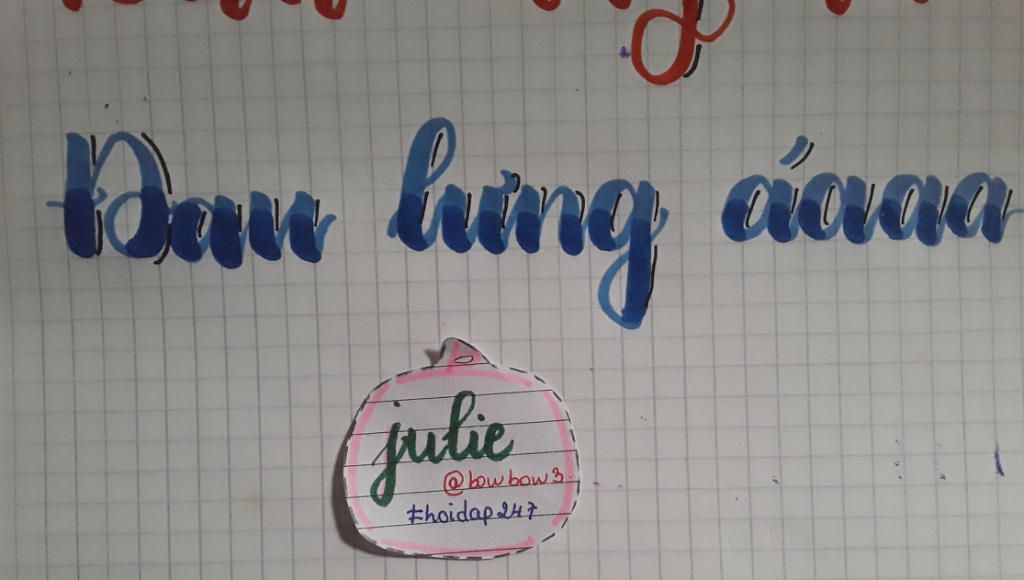 Đau lưng áaaa
julie
@bowbow3.
#hoidap247